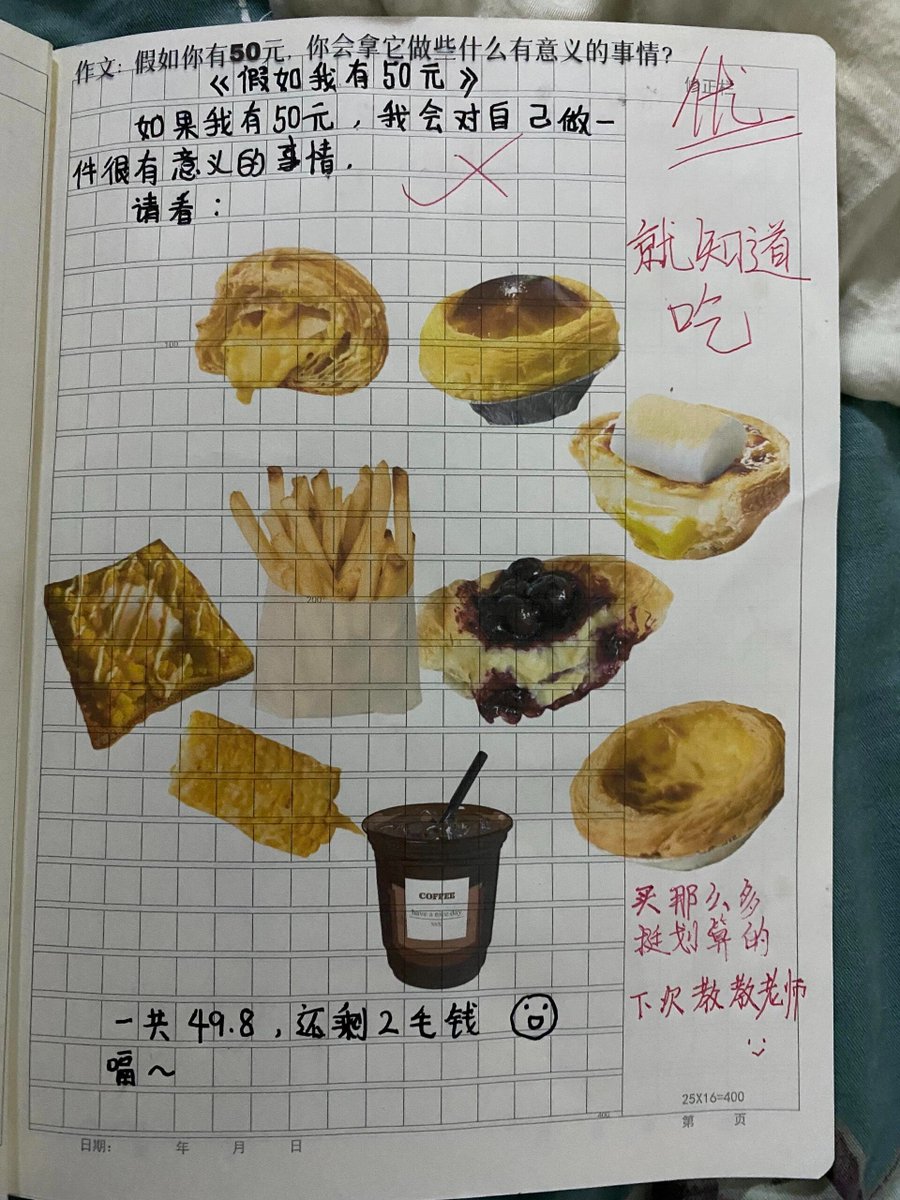 作文: 假如你有50元, 你会拿它做些什么有意义的事情?
《假如我有50元》
如果我有50元，我会对自己做一
件很有意义的事情.
请看：
优
就知道
吃
100
200
COFFEE
have a nice day
买那么多
挺划算的
下次教教老师
一共 49.8，还剩2毛钱
嗝～
25X16=400
400
第 页
日期: 年 月 日